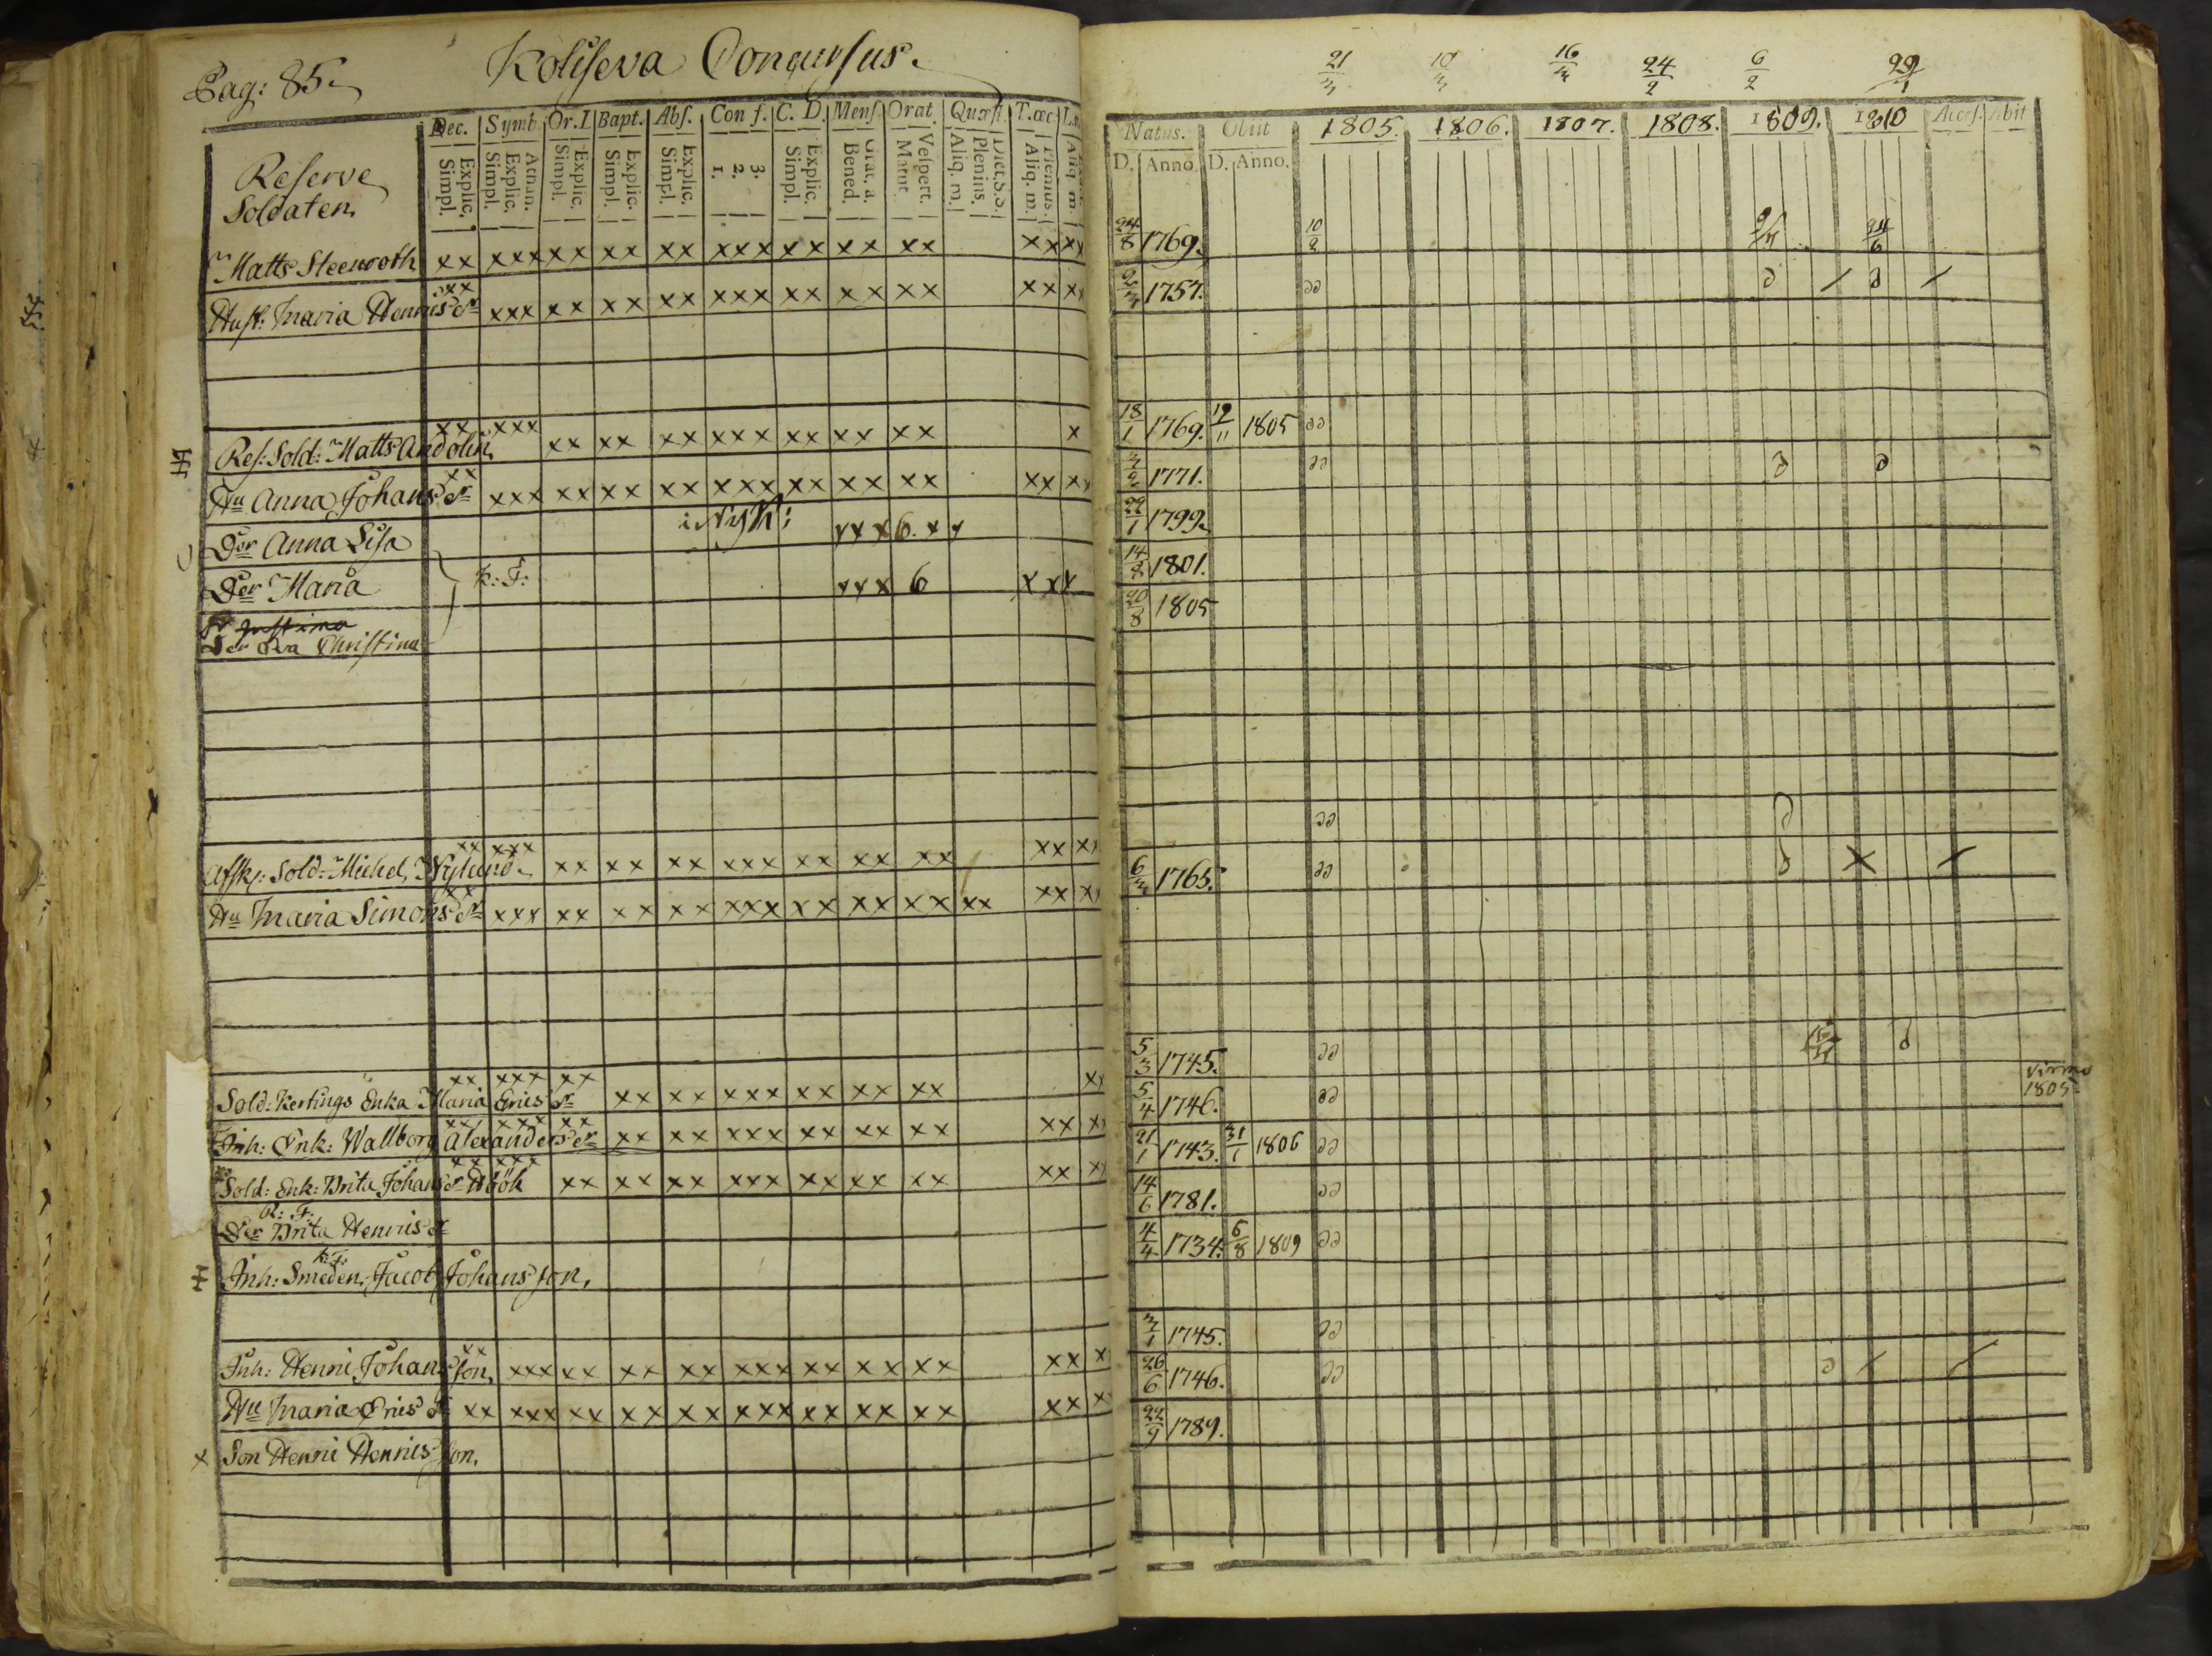 Pag: 85.
Koliseva Concursus.
Dec. Symb. Or.D Bapt. Abs. Conf. C. D. Mens. Orat. Quæst. T.œc
Explic. Simpl. Athan. Explic. Simpl. Explic. Simpl. Explic. Simpl. Explic. Simpl. 3. 2. 1. Explic. Simpl. Grat. a. Bened. Vespert. Matut. Dict.S.S. Plenius. Aliq. m. Plenius. Aliq. m. Aliq. m.
Reserve
Soldaten,
Matts Steenroth xx xxx xx xx xx xxx xx xx xx xx xx
Hust: Maria Henrics dr xx xxx xx xx xx xxx xx xx xx xx xx
Res: Sold: Matts Andolin, xx xxx xx xx xx xxx xx xx xx x
Hu Anna Johans dr xx xxx xx xx xx xxx xx xx xx xx xx
Der Anna Lisa i Nyk: xxx 6. xx
Der Maria K: F: xxx 6 xxx
Der Eva Christina
Afsk: Sold: Michel Nylund. xx xxx xx xx xx xxx xx xx xx xx xx
Hu Maria Simons dr xx xxx xx xx xx xxx xx xx xx xx xx xx
Sold: Kertings Enka Maria Erics dr xx xxx xx xx xx xxx xx xx xx xx
Inh: Enk: Wallborg Alexanders dr xx xxx xx xx xx xxx xx xx xx xx xx
Sold: Enk: Brita Johans dr Höök xx xxx xx xx xx xxx xx xx xx xx xx
K: F:
Der Brita Henrics dr
K: F:
Inh: Smeden, Jacob Johans son,
Inh: Henric Johans son, xx xxx xx xx xx xxx xx xx xx xx x
Hu Maria Erics dr xx xxx xx xx xx xxx xx xx xx xx x
x Son Henric Henrics son,
21/3 10/3 16/3 24/2 6/2 29/1
Natus. Obiit 1805. 1806. 1807. 1808. 1809. 1810 Access. Abit
D. Anno. D. Anno.
24/8 1769. 10/2
1757.
18/1 1769. 12/11 1805
3/2 1771.
22/1 1799.
14/8 1801.
20/8 1805
6/3 1765.
5/3 1745.
5/4 1746. Virmo
1805.
21/1 1743. 31/1 1806
14/6 1781.
4/4 1734. 6/8 1809
3/1 1745.
26/6 1746.
22/9 1789.